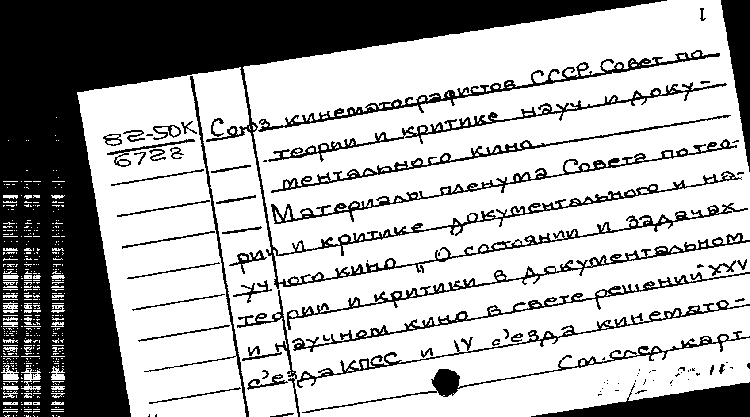 1
82-50К
6728
Союз кинематографистов СССР. Совет по
теории и критике науч. и доку-
ментального кино.
Материалы пленума Совета по тео-
рии и критике документального и на-
учного кино "О состоянии и задачах
теории и критики в документальном
и научном кино в свете решений XXV
с'езда КПСС и IV с'езда кинемато-
См. след. карт.